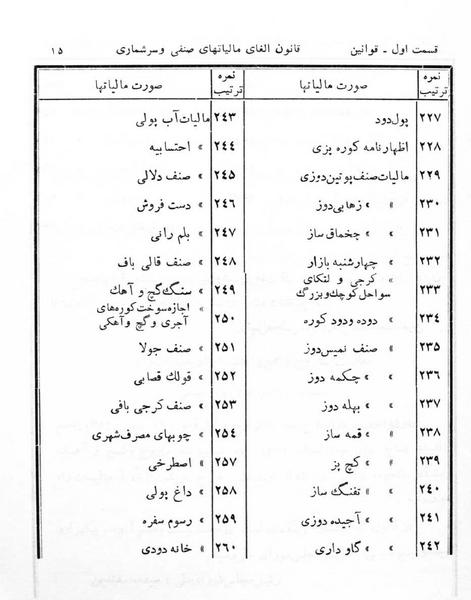 قسمت اول - قوانین قانون الغای مالیاتهای صنفی و سرشماری ۱۵
نمره ترتیب صورت مالیاتها
۲۲۷ پول دود
۲۲۸ اظهارنامه کوره پزی
۲۲۹ مالیات صنف پوتین دوزی
۲۳۰ » » زهابی دوز
۲۳۱ » » چخماق ساز
۲۳۲ » چهارشنبه بازار
۲۳۳ » کرجی و لتکای
سواحل کوچک و بزرگ
۲۳۴ » دوده و دود کوره
۲۳۵ » صنف نمیس دوز
۲۳۶ » » چکمه دوز
۲۳۷ » » بهله دوز
۲۳۸ » » قمه ساز
۲۳۹ » » کچ پز
۲۴۰ » » تفنگ ساز
۲۴۱ » » آجیده دوزی
۲۴۲ » » گاو داری
نمره ترتیب صورت مالیاتها
۲۴۳ مالیات آب پولی
۲۴۴ » احتسابیه
۲۴۵ » صنف دلالی
۲۴۶ » دست فروش
۲۴۷ » بلم رانی
۲۴۸ » صنف قالی باف
۲۴۹ » سنگ گچ و آهک
۲۵۰ » اجازه سوخت کوره های
آجری و گچ و آهکی
۲۵۱ » صنف جولا
۲۵۲ » قولک قصابی
۲۵۳ » صنف کرجی بافی
۲۵۴ » چوبهای مصرف شهری
۲۵۷ » اصطرخی
۲۵۸ » داغ پولی
۲۵۹ » رسوم سفره
۲۶۰ » خانه دودی